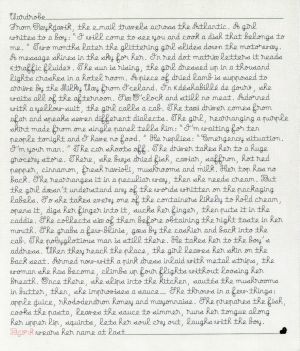 Wardrobe
From Reykjavik, the e.mail travels across the Atlantic. A girl
writes to a boy: "I will come to see you and cook a dish that belongs to
me." Two months later the glittering girl slides down the motorway.
A message shines in the sky for her. In red dot matrix letters it reads
<traffic fluide>. The sun is rising, the girl dressed up in a thousand
lights crashes in a hotel room. A piece of dried lamb is supposed to
arrive by the Milky Way from Iceland. In <déshabillé de jour>, she
waits all of the afternoon. Five O'clock and still no meat. Adorned
with a yellow suit, the girl calls a cab. The taxi driver comes from
afar and speaks seven different dialects. The girl, rearranging a purple
skirt made from one single panel tells him: "I'm waiting for ten
people tonight and I have no food." He replies: "Emergency situation,
I'm your man." The car shoots off. The driver takes her to a huge
grocery store. There, she buys dried fish, caviar, saffron, hot red
pepper, cinnamon, fresh ravioli, mushrooms and milk. Her top has no
back. She rearranges it in a peculiar way, then she needs cream. But
the girl doesn't understand any of the words written on the packaging
labels. So she takes every one of the containers likely to hold cream,
opens it, dips her finger into it, sucks her finger, then puts it in the
caddie. She collects six of them before obtaining the right taste in her
mouth. She grabs a few blinis, goes by the cashier and back into the
cab. The polyglottous man is still there. He takes her to the boy's
address. When they reach the place, the girl leaves her skin on the
back seat. Armed now with a pink dress inlaid with metal strips, the
woman she has become, climbs up four flights without losing her
breath. Once there, she slips into the kitchen, sautés the mushrooms
in butter, then, she improvises a sauce... She throws in a few things:
apple juice, rhododendron honey and mayonnaise. She prepares the fish,
cooks the pasta, leaves the sauce to simmer, runs her tongue along
her upper lip, squints, lets her soul cry out, laughs with the boy.
wears her name at last.